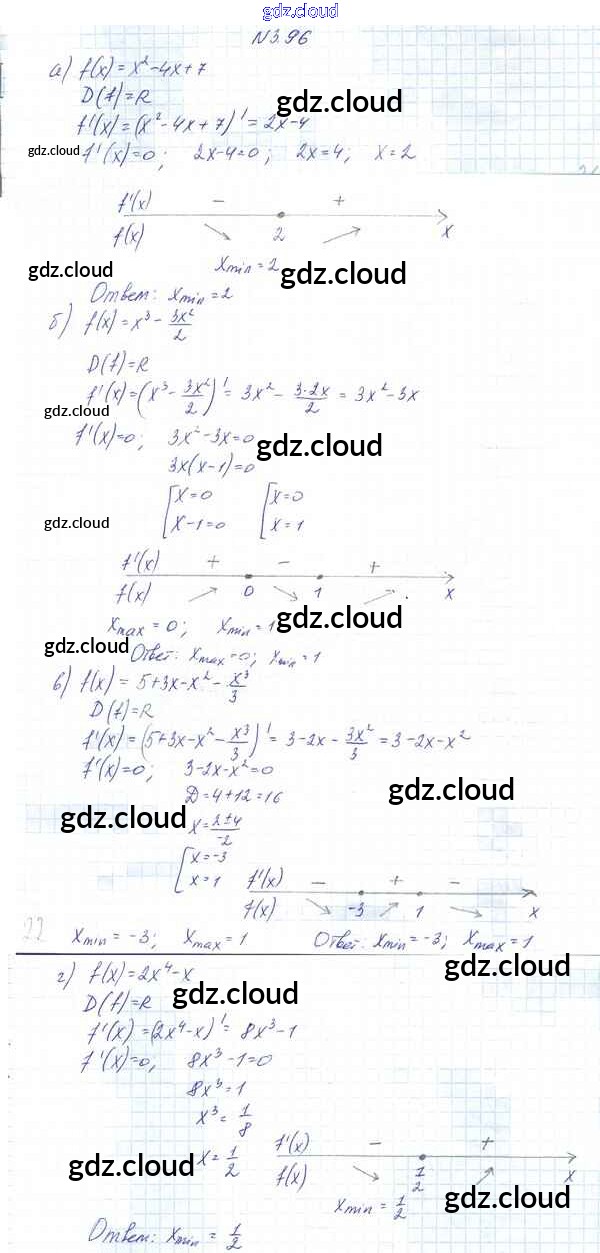 gdz.cloud
N 3.96
а) f(x) = x² - 4x + 7
D(f) = R
gdz.cloud
f'(x) = (x² - 4x + 7)' = 2x - 4
gdz.cloud
f'(x) = 0; 2x - 4 = 0; 2x = 4; x = 2
f'(x) - +
f(x) 2 x
gdz.cloud xmin = 2 gdz.cloud
Ответ: xmin = 2
б) f(x) = x³ - 3x²/2
D(f) = R
f'(x) = (x³ - 3x²/2)' = 3x² - 3·2x/2 = 3x² - 3x
gdz.cloud
f'(x) = 0; 3x² - 3x = 0
gdz.cloud
3x(x - 1) = 0
[x = 0 [x = 0
[x - 1 = 0 [x = 1
gdz.cloud
f'(x) + - +
f(x) 0 1 x
xmax = 0; xmin = 1 gdz.cloud
gdz.cloud Ответ: xmax = 0; xmin = 1
в) f(x) = 5 + 3x - x² - x³/3
D(f) = R
f'(x) = (5 + 3x - x² - x³/3)' = 3 - 2x - 3x²/3 = 3 - 2x - x²
f'(x) = 0; 3 - 2x - x² = 0
D = 4 + 12 = 16 gdz.cloud
gdz.cloud x = 2±4/-2
[x = -3
[x = 1 f'(x) - + -
f(x) -3 1 x
22 xmin = -3; xmax = 1 Ответ: xmin = -3; xmax = 1
г) f(x) = 2x⁴ - x gdz.cloud
D(f) = R gdz.cloud
f'(x) = (2x⁴ - x)' = 8x³ - 1
f'(x) = 0, 8x³ - 1 = 0
8x³ = 1
x³ = 1/8
x = 1/2 f'(x) - +
gdz.cloud f(x) 1/2 x
xmin = 1/2 gdz.cloud
Ответ: xmin = 1/2